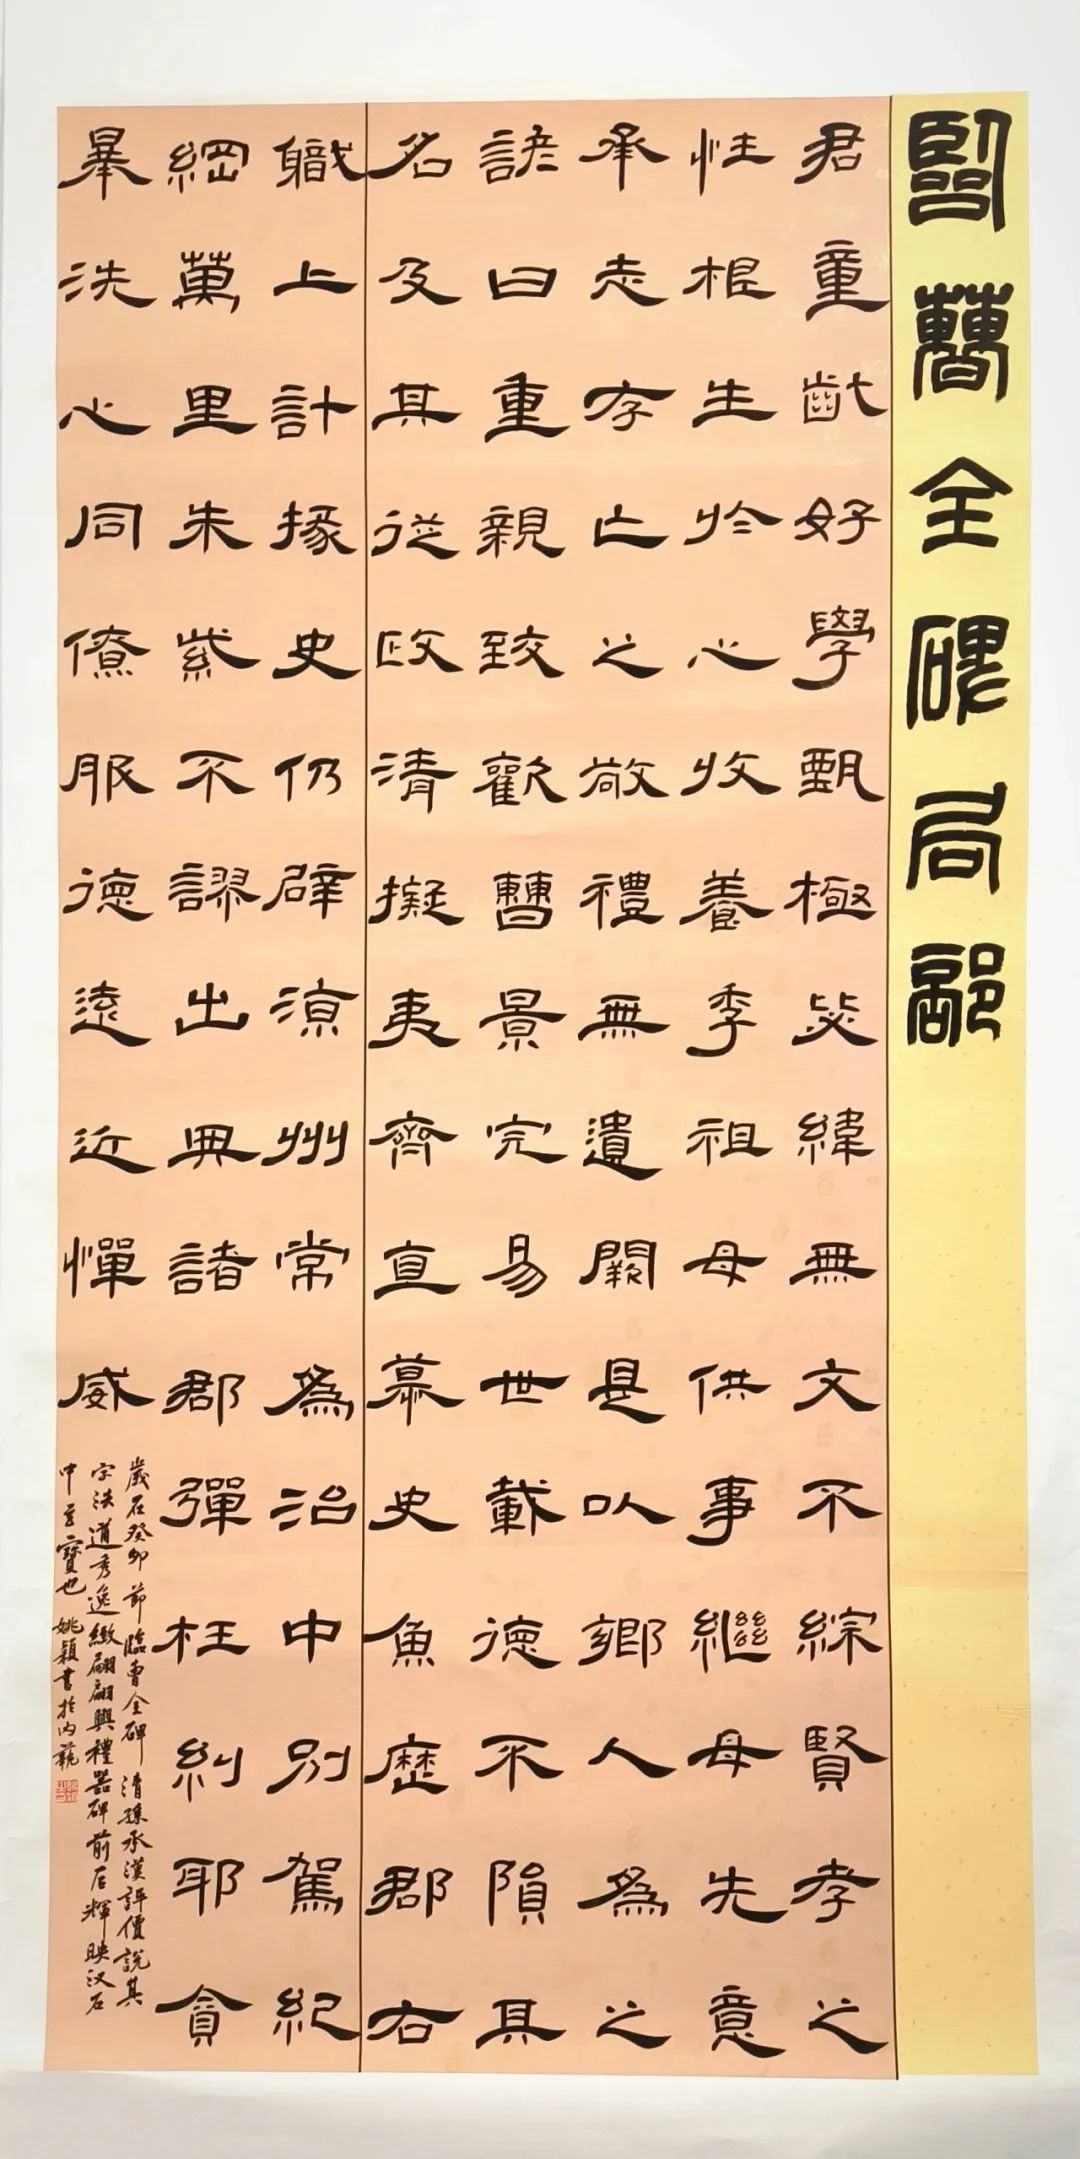 臨曹全碑局部
君童齔好學甄極毖緯無文不綜賢孝之
性根生於心收養季祖母供事繼母先意
承志存亡之敬禮無遺闕是以鄉人為之
諺曰重親致歡曹景完易世載德不隕其
名及其從政清擬夷齊直慕史魚歷郡右
職上計掾史仍辟涼州常為治中別駕紀
綱萬里朱紫不謬出典諸郡彈枉糾邪貪
暴洗心同僚服德遠近憚威
歲在癸卯節臨曹全碑 清孫承澤評價說其
字法遒秀逸緻翩翩與禮器碑前后輝映汉石
中至寶也 姚穎書於內